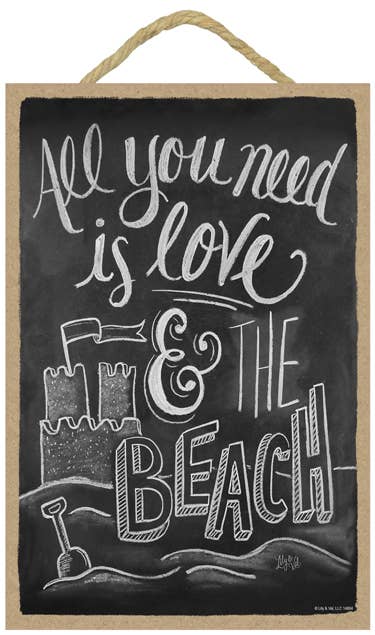 All you need
is love
& THE
BEACH
Lily & Val
© Lily & Val, LLC 14694